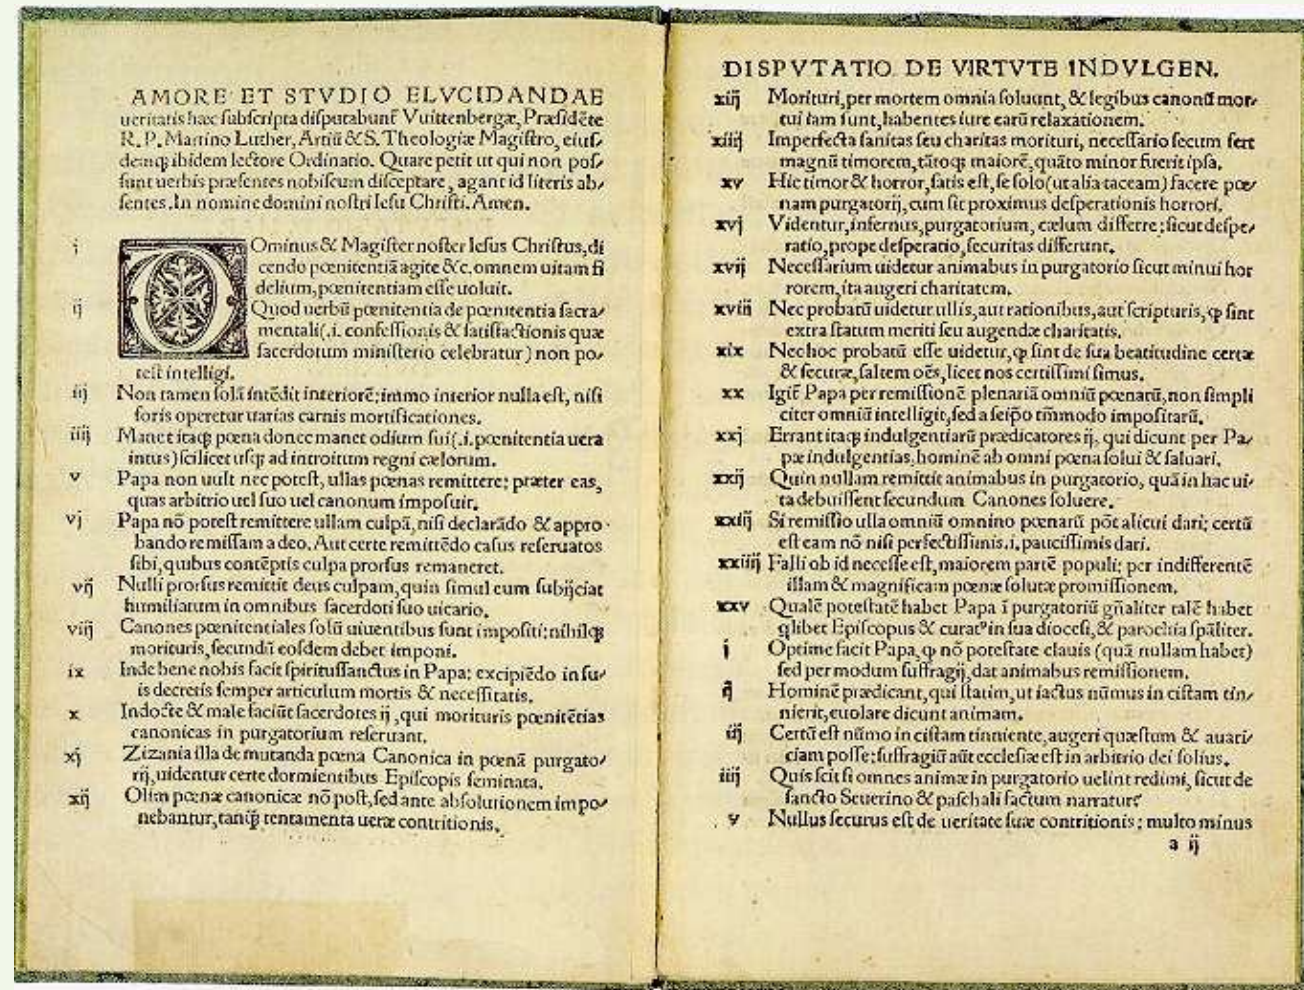 AMORE ET STVDIO ELVCIDANDAE
ueritatis hæc subscripta disputabunt᷑ Vuittenbergæ, Præsidẽte
R. P. Martino Luther, Artiũ & S. Theologiæ Magistro, eius/
demq́; ibidem lectore Ordinatio. Quare petit ut qui non pos/
sunt uerbis præsentes nobiscum disceptare, agant id literis ab/
sentes. In nomine domini nostri Iesu Christi. Amen.
i Ominus & Magister noster Iesus Christus, di
cendo pœnitentiã agite &c. omnem uitam fi
delium, pœnitentiam esse uoluit.
ij Quod uerbũ pœnitentia de pœnitentia sacra/
mentali (.i. confessionis & satisfactionis quæ
sacerdotum ministerio celebratur) non po/
test intelligi.
iij Non tamen solã intẽdit interiorẽ; immo interior nulla est, nisi
foris operetur uarias carnis mortificationes.
iiij Manet itaq́; pœna donec manet odium sui (.i. pœnitentia uera
intus) scilicet usq́; ad introitum regni cælorum.
v Papa non uult nec potest, ullas pœnas remittere; præter eas,
quas arbitrio uel suo uel canonum imposuit.
vj Papa nõ potest remittere ullam culpã, nisi declarãdo & appro
bando remissam a deo. Aut certe remittẽdo casus reseruatos
sibi, quibus contẽptis culpa prorsus remaneret.
vij Nulli prorsus remittit deus culpam, quin simul eum subijciat
humiliatum in omnibus sacerdoti suo uicario.
viij Canones pœnitentiales solũ uiuentibus sunt impositi; nihilq́;
morituris, secundũ eosdem debet imponi.
ix Inde bene nobis facit spiritussanctus in Papa; excipiẽdo in su/
is decretis semper articulum mortis & necessitatis.
x Indocte & male faciũt sacerdotes ij, qui morituris pœnitẽtias
canonicas in purgatorium reseruant.
xj Zizania illa de mutanda pœna Canonica in pœnã purgato/
rij, uidentur certe dormientibus Episcopis seminata.
xij Olim pœnæ canonicæ nõ post, sed ante absolutionem impo/
nebantur, tanq̃; tentamenta ueræ contritionis.
DISPVTATIO DE VIRTVTE INDVLGEN.
xiij Morituri, per mortem omnia soluunt, & legibus canonũ mor/
tui iam sunt, habentes iure earũ relaxationem.
xiiij Imperfecta sanitas seu charitas morituri, necessario secum fert
magnũ timorem, tãtoq́; maiorẽ, quãto minor fuerit ipsa.
xv Hic timor & horror, satis est, se solo (ut alia taceam) facere pœ/
nam purgatorij, cum sit proximus desperationis horrori.
xvj Videntur, infernus, purgatorium, cælum differre; sicut despe/
ratio, prope desperatio, securitas differunt.
xvij Necessarium uidetur animabus in purgatorio sicut minui hor
rorem, ita augeri charitatem.
xviij Nec probatũ uidetur ullis, aut rationibus, aut scripturis, ꝙ sint
extra statum meriti seu augendæ charitatis.
xix Nec hoc probatũ esse uidetur, ꝙ sint de sua beatitudine certæ
& securæ, saltem oẽs, licet nos certissimi simus.
xx Igit᷑ Papa per remissionẽ plenariã omniũ pœnarũ, non simpli
citer omniũ intelligit, sed a seipõ tm̃modo impositarũ.
xxj Errant itaq́; indulgentiarũ prædicatores ij, qui dicunt per Pa/
pæ indulgentias, hominẽ ab omni pœna solui & saluari.
xxij Quin nullam remittit animabus in purgatorio, quã in hac ui/
ta debuissent secundum Canones soluere.
xxiij Si remissio ulla omniũ omnino pœnarũ põt alicui dari; certũ
est eam nõ nisi perfectissimis .i. paucissimis dari.
xxiiij Falli ob id necesse est, maiorem partẽ populi; per indifferentẽ
illam & magnificam pœnæ solutæ promissionem.
xxv Qualẽ potestatẽ habet Papa ĩ purgatoriũ gñaliter talẽ habet
q̃libet Episcopus & curatꝰ in sua diocesi, & parochia sp̃aliter.
j Optime facit Papa, ꝙ nõ potestate clauis (quã nullam habet)
sed per modum suffragij, dat animabus remissionem.
ij Hominẽ prædicant, qui statim, ut iactus nũmus in cistam tin/
nierit, euolare dicunt animam.
iij Certũ est nũmo in cistam tinniente, augeri quæstum & auari/
ciam posse; suffragiũ aũt ecclesiæ est in arbitrio dei solius.
iiij Quis scit si omnes animæ in purgatorio uelint redimi, sicut de
sancto Seuerino & paschali factum narratur?
v Nullus securus est de ueritate suæ contritionis; multo minus
a ij